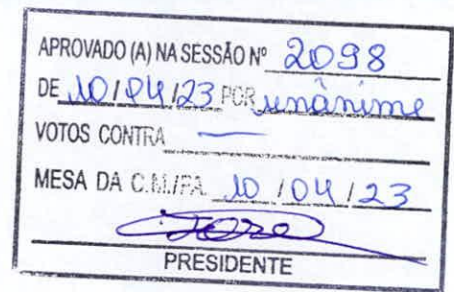 APROVADO (A) NA SESSÃO Nº 2098
DE 10/04/23 POR unânime
VOTOS CONTRA —
MESA DA C.M./P.A. 10/04/23
PRESIDENTE